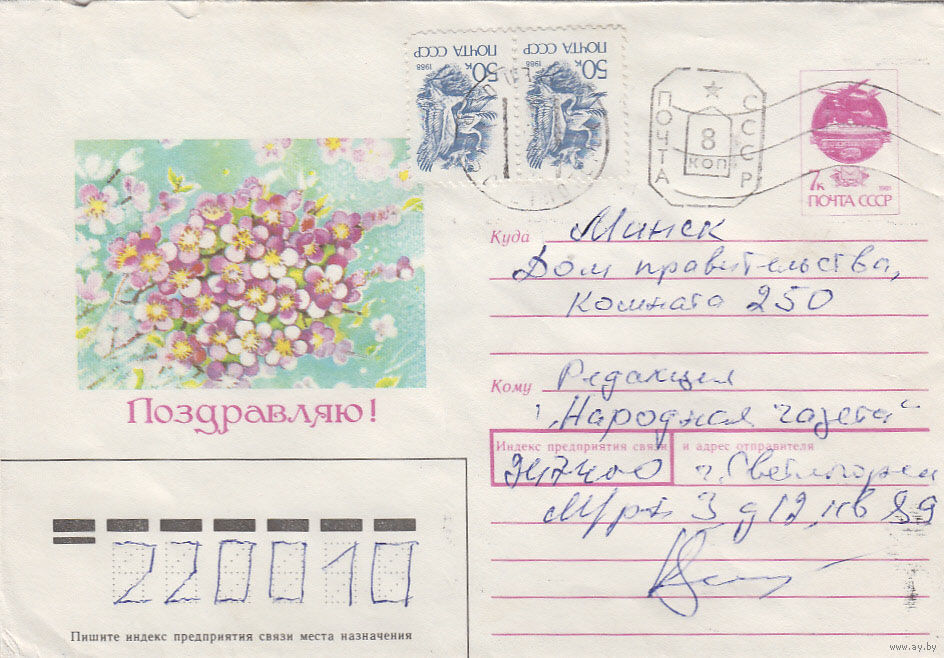 50к 1988
ПОЧТА СССР
50к 1988
ПОЧТА СССР
ПОЧТА
8
КОП
СССР
7к 1991
ПОЧТА СССР
Куда Минск
Дом правительства,
комната 250
Кому Редакция
„Народная газета“
Индекс предприятия связи и адрес отправителя
247400 г. Светлогорск
М/р 3 д 12, кв 89
Поздравляю!
220010
Пишите индекс предприятия связи места назначения
www.ay.by